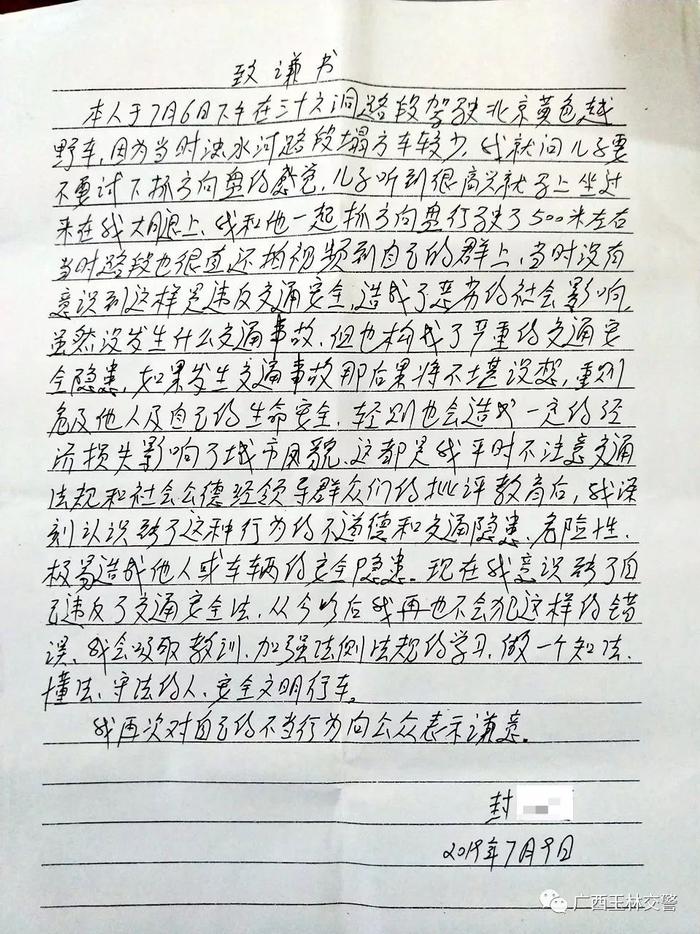 致谦书
本人于7月6日下午在三十六洞路段驾驶北京黄色越
野车,因为当时洪水河路段塌方车较少,我就问儿子要
不要试下抓方向盘的感觉,儿子听到很高兴就马上坐过
来在我大腿上,我和他一起抓方向盘行驶了500米左右
当时路段也很直还拍视频到自己的群上,当时没有
意识到这样是违反交通安全,造成了恶劣的社会影响,
虽然没发生什么交通事故,但也构成了严重的交通安
全隐患,如果发生交通事故那后果将不堪设想,重则
危及他人及自己的生命安全,轻则也会造成一定的经
济损失影响了城市风貌、这都是我平时不注意交通
法规和社会公德经领导群众们的批评教育后,我深
刻认识到了这种行为的不道德和交通隐患、危险性,
极易造成他人或车辆的安全隐患。现在我意识到了自
己违反了交通安全法,从今以后我再也不会犯这样的错
误、我会吸取教训、加强法则法规的学习、做一个知法、
懂法、守法的人、安全文明行车。
我再次对自己的不当行为向公众表示谦意。
封
2019年7月9日
广西玉林交警